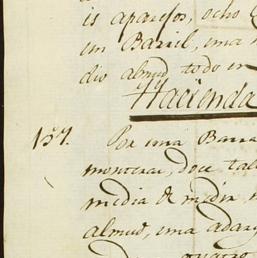 is aparejos, ocho
un Baril, una
dio almud todo en
Hacienda
157. Por una Barra
monterar, doce tal
media & medir
almud, una adarg
quatro